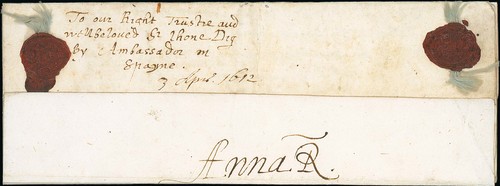 To our Right Trustie and
wellbeloved Sr Jhone Dig
by Ambassador in
Spayne.
3 Apr. 1612
Anna R.